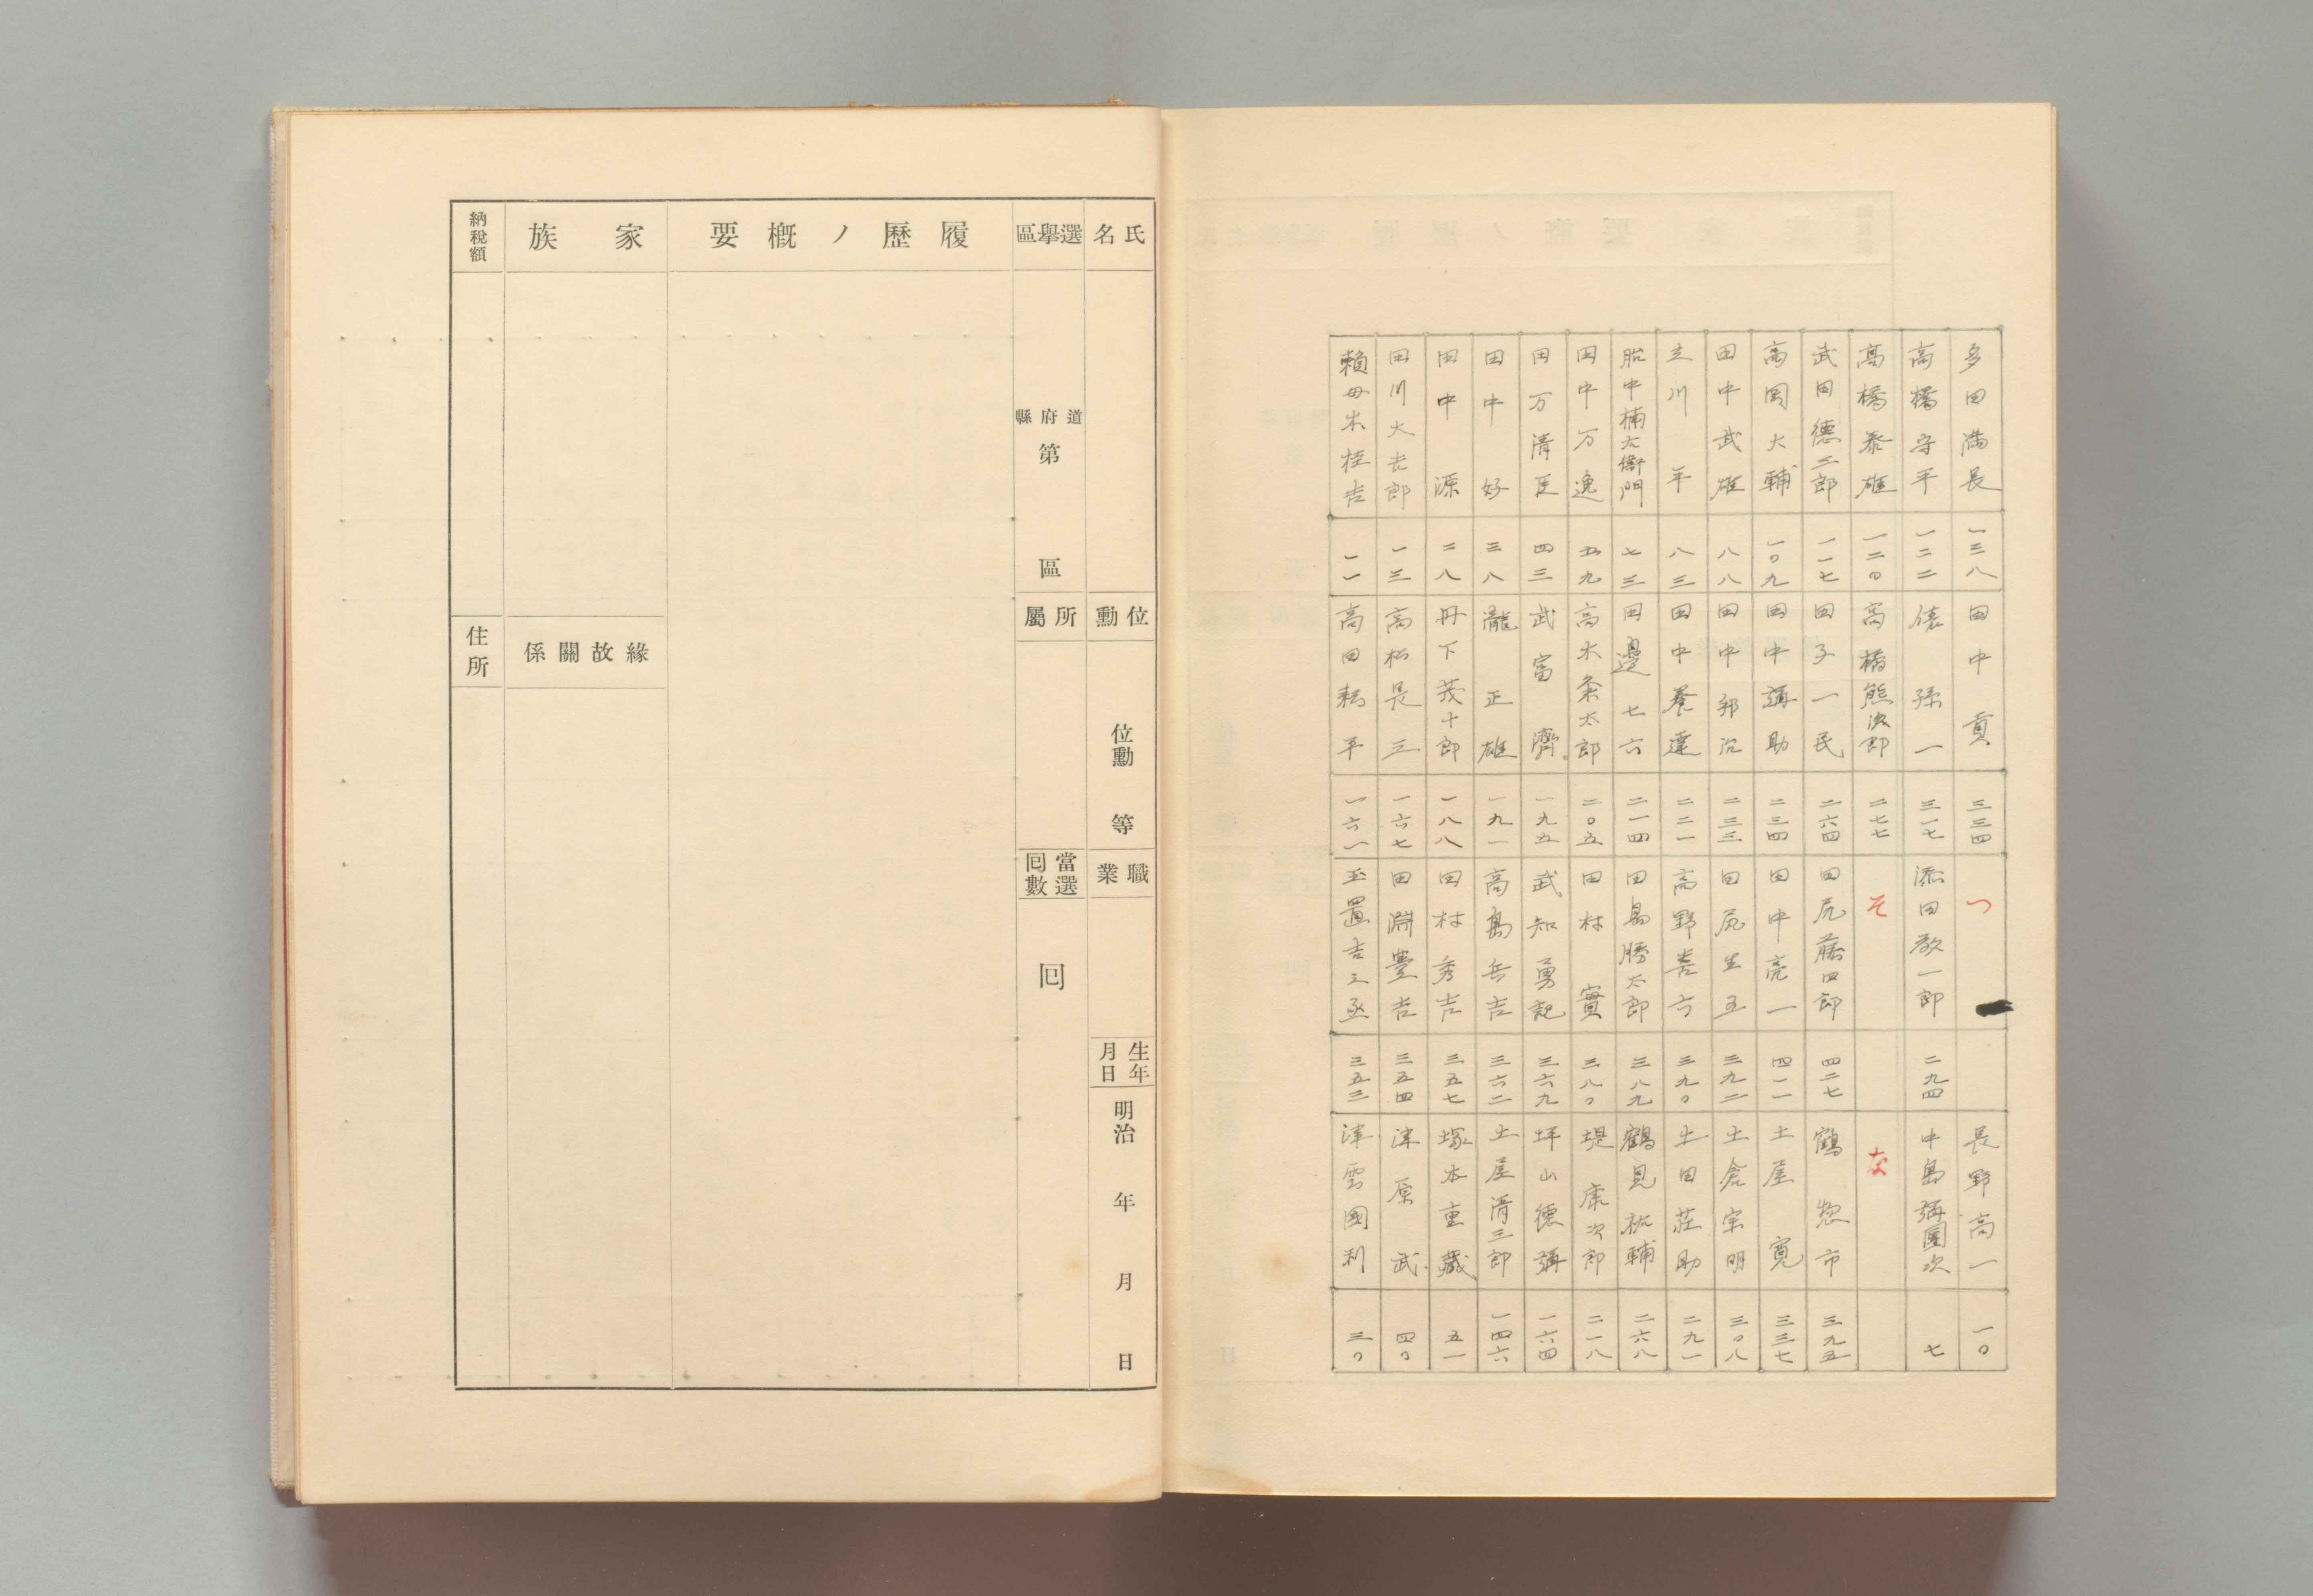 多田満長 一三八
高橋守平 一二二
高橋泰雄 一二〇
武田德三郎 一一七
高岡大輔 一〇九
田中武雄 八八
立川平 八三
胎中楠右衛門 七三
田中万逸 五九
田万清臣 四三
田中好 三八
田中源 二八
田川大吉郎 一三
賴母木桂吉 一一
田中貢 三三四
俵孫一 三一七
高橋熊次郎 二七七
田子一民 二六四
田中彌助 二三四
田中邦治 二三三
田中養達 二二一
田邊七六 二一四
高木粂太郎 二〇五
武富濟 一九五
瀧正雄 一九一
丹下茂十郎 一八八
高松是三 一六七
高田耘平 一六一
つ
添田敬一郎 二九四
そ
田尻藤四郎 四二七
田中亮一 四一一
田尻生五 三九二
高野善六 三九〇
田島勝太郎 三八九
田村實 三八〇
武知勇記 三六九
高島兵吉 三六二
田村秀吉 三五七
田淵豊吉 三五四
玉置吉之丞 三五二
長野高一 一〇
中島彌團次 七
な
鶴惣市 三九五
土屋寛 三三七
土倉宗明 三〇八
土田莊助 二九一
鶴見祐輔 二六八
堤康次郎 二一八
坪山德彌 一六四
土屋清三郎 一四六
塚本重藏 五一
津原武 四〇
津雲國利 三〇
氏名
位勳
位勳 等
職業
生年月日
明治 年 月 日
選擧區
道府縣
第 區
所屬
當選囘數
囘
履歷ノ概要
家族
緣故關係
納稅額
住所